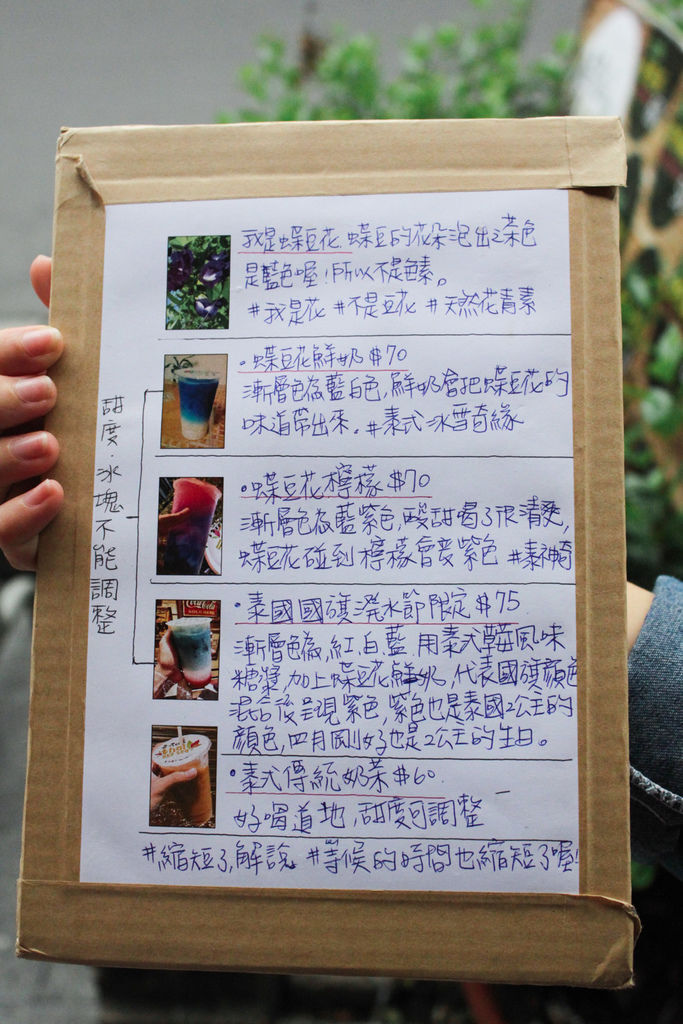 我是蝶豆花.蝶豆的花朵泡出之茶色
是藍色喔!所以不是色素。
#我是花 #不是豆花 #天然花青素
・蝶豆花鮮奶$70
漸層色為藍白色,鮮奶會把蝶豆花的
味道帶出來。#泰式冰雪奇緣
・蝶豆花檸檬$70
漸層色為藍紫色,酸甜喝了很清爽,
蝶豆花碰到檸檬會變紫色 #泰神奇
・泰國國旗潑水節限定$75
漸層色為,紅.白.藍.用泰式草莓風味
糖漿,加上蝶豆花鮮奶.代表國旗顏色
混合後呈現紫色,紫色也是泰國2公主的
顏色,四月剛好也是2公主的生日。
・泰式傳統奶茶$60
好喝道地,甜度可調整
#縮短了解說 #等候的時間也縮短了喔!
甜度.冰塊不能調整
Coca-Cola